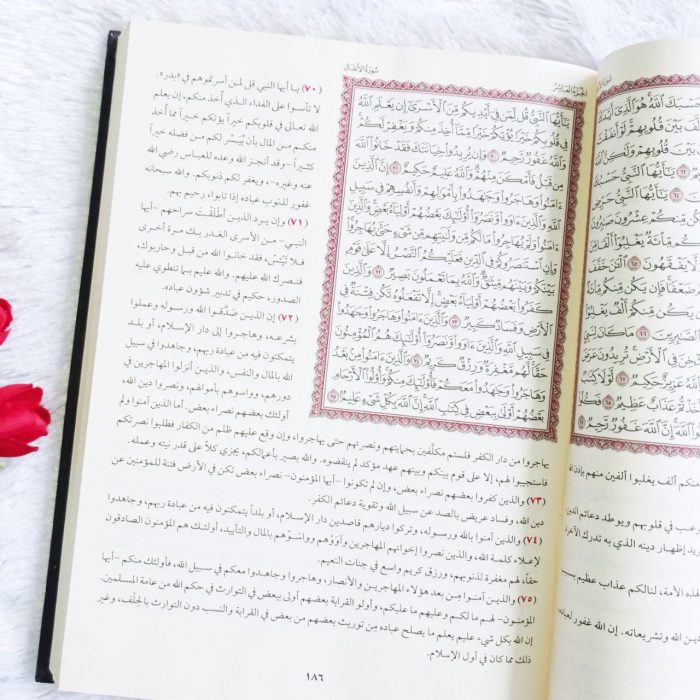 سُورَةُ الأَنفَالِ
الجُزْءُ العَاشِرُ
يَٰٓأَيُّهَا ٱلنَّبِيُّ قُل لِّمَن فِيٓ أَيۡدِيكُم مِّنَ ٱلۡأَسۡرَىٰٓ إِن يَعۡلَمِ ٱللَّهُ
فِي قُلُوبِكُمۡ خَيۡرٗا يُؤۡتِكُمۡ خَيۡرٗا مِّمَّآ أُخِذَ مِنكُمۡ وَيَغۡفِرۡ لَكُمۡۚ
وَٱللَّهُ غَفُورٞ رَّحِيمٞ ٧٠ وَإِن يُرِيدُواْ خِيَانَتَكَ فَقَدۡ خَانُواْ ٱللَّهَ
مِن قَبۡلُ فَأَمۡكَنَ مِنۡهُمۡۗ وَٱللَّهُ عَلِيمٌ حَكِيمٌ ٧١ إِنَّ ٱلَّذِينَ
ءَامَنُواْ وَهَاجَرُواْ وَجَٰهَدُواْ بِأَمۡوَٰلِهِمۡ وَأَنفُسِهِمۡ فِي سَبِيلِ
ٱللَّهِ وَٱلَّذِينَ ءَاوَواْ وَّنَصَرُوٓاْ أُوْلَٰٓئِكَ بَعۡضُهُمۡ أَوۡلِيَآءُ بَعۡضٖۚ وَٱلَّذِينَ
ءَامَنُواْ وَلَمۡ يُهَاجِرُواْ مَا لَكُم مِّن وَلَٰيَتِهِم مِّن شَيۡءٍ حَتَّىٰ يُهَاجِرُواْۚ
وَإِنِ ٱسۡتَنصَرُوكُمۡ فِي ٱلدِّينِ فَعَلَيۡكُمُ ٱلنَّصۡرُ إِلَّا عَلَىٰ قَوۡمِۭ
بَيۡنَكُمۡ وَبَيۡنَهُم مِّيثَٰقٞۗ وَٱللَّهُ بِمَا تَعۡمَلُونَ بَصِيرٞ ٧٢ وَٱلَّذِينَ
كَفَرُواْ بَعۡضُهُمۡ أَوۡلِيَآءُ بَعۡضٍۚ إِلَّا تَفۡعَلُوهُ تَكُن فِتۡنَةٞ فِي
ٱلۡأَرۡضِ وَفَسَادٞ كَبِيرٞ ٧٣ وَٱلَّذِينَ ءَامَنُواْ وَهَاجَرُواْ وَجَٰهَدُواْ
فِي سَبِيلِ ٱللَّهِ وَٱلَّذِينَ ءَاوَواْ وَّنَصَرُوٓاْ أُوْلَٰٓئِكَ هُمُ ٱلۡمُؤۡمِنُونَ
حَقّٗاۚ لَّهُم مَّغۡفِرَةٞ وَرِزۡقٞ كَرِيمٞ ٧٤ وَٱلَّذِينَ ءَامَنُواْ مِنۢ بَعۡدُ
وَهَاجَرُواْ وَجَٰهَدُواْ مَعَكُمۡ فَأُوْلَٰٓئِكَ مِنكُمۡۚ وَأُوْلُواْ ٱلۡأَرۡحَامِ
بَعۡضُهُمۡ أَوۡلَىٰ بِبَعۡضٖ فِي كِتَٰبِ ٱللَّهِۚ إِنَّ ٱللَّهَ بِكُلِّ شَيۡءٍ عَلِيمُۢ ٧٥
(٧٠) يا أيها النبي قل لمن أسرتموهم في «بدر»:
لا تأسوا على الفداء الذي أخذ منكم، إن يعلم
الله تعالى في قلوبكم خيراً يؤتكم خيراً مما أُخذ
منكم من المال بأن يُيَسِّر لكم من فضله خيراً
كثيراً -وقد أنجز الله وعده للعباس رضي الله
عنه وغيره-، ويغفر لكم ذنوبكم. والله سبحانه
غفور لذنوب عباده إذا تابوا، رحيم بهم.
(٧١) وإن يرد الذين أَطْلَقْتَ سراحهم -أيها
النبي- من الأسرى الغدر بك مرة أخرى
فلا تَيْئسْ، فقد خانوا الله من قبل وحاربوك،
فنصرك الله عليهم. والله عليم بما تنطوي عليه
الصدور، حكيم في تدبير شؤون عباده.
(٧٢) إن الذين صدَّقوا الله ورسوله وعملوا
بشرعه، وهاجروا إلى دار الإسلام، أو بلد
يتمكنون فيه من عبادة ربهم، وجاهدوا في سبيل
الله بالمال والنفس، والذين أنزلوا المهاجرين في
دورهم، وواسوهم بأموالهم، ونصروا دين الله،
أولئك بعضهم نصراء بعض. أما الذين آمنوا ولم
يهاجروا من دار الكفر فلستم مكلفين بحمايتهم ونصرتهم حتى يهاجروا، وإن وقع عليهم ظلم من الكفار فطلبوا نصرتكم
فاستجيبوا لهم، إلا على قوم بينكم وبينهم عهد مؤكد لم ينقضوه. والله بصير بأعمالكم، يجزي كلاً على قدر نيته وعمله.
(٧٣) والذين كفروا بعضهم نصراء بعض، وإن لم تكونوا -أيها المؤمنون- نصراء بعض تكن في الأرض فتنة للمؤمنين عن
دين الله، وفساد عريض بالصد عن سبيل الله وتقوية دعائم الكفر.
(٧٤) والذين آمنوا بالله ورسوله، وتركوا ديارهم قاصدين دار الإسلام، أو بلداً يتمكنون فيه من عبادة ربهم، وجاهدوا
لإعلاء كلمة الله، والذين نصروا إخوانهم المهاجرين وآوَوْهم وواسَوْهم بالمال والتأييد، أولئك هم المؤمنون الصادقون
حقاً، لهم مغفرة لذنوبهم، ورزق كريم واسع في جنات النعيم.
(٧٥) والذين آمنوا مِن بعد هؤلاء المهاجرين والأنصار، وهاجروا وجاهدوا معكم في سبيل الله، فأولئك منكم -أيها
المؤمنون- لهم ما لكم وعليهم ما عليكم، وأولو القرابة بعضهم أولى ببعض في التوارث في حكم الله من عامة المسلمين.
إن الله بكل شيء عليم يعلم ما يصلح عباده مِن توريث بعضهم من بعض في القرابة والنسب دون التوارث بالحِلْف، وغير
ذلك مما كان في أول الإسلام.
١٨٦